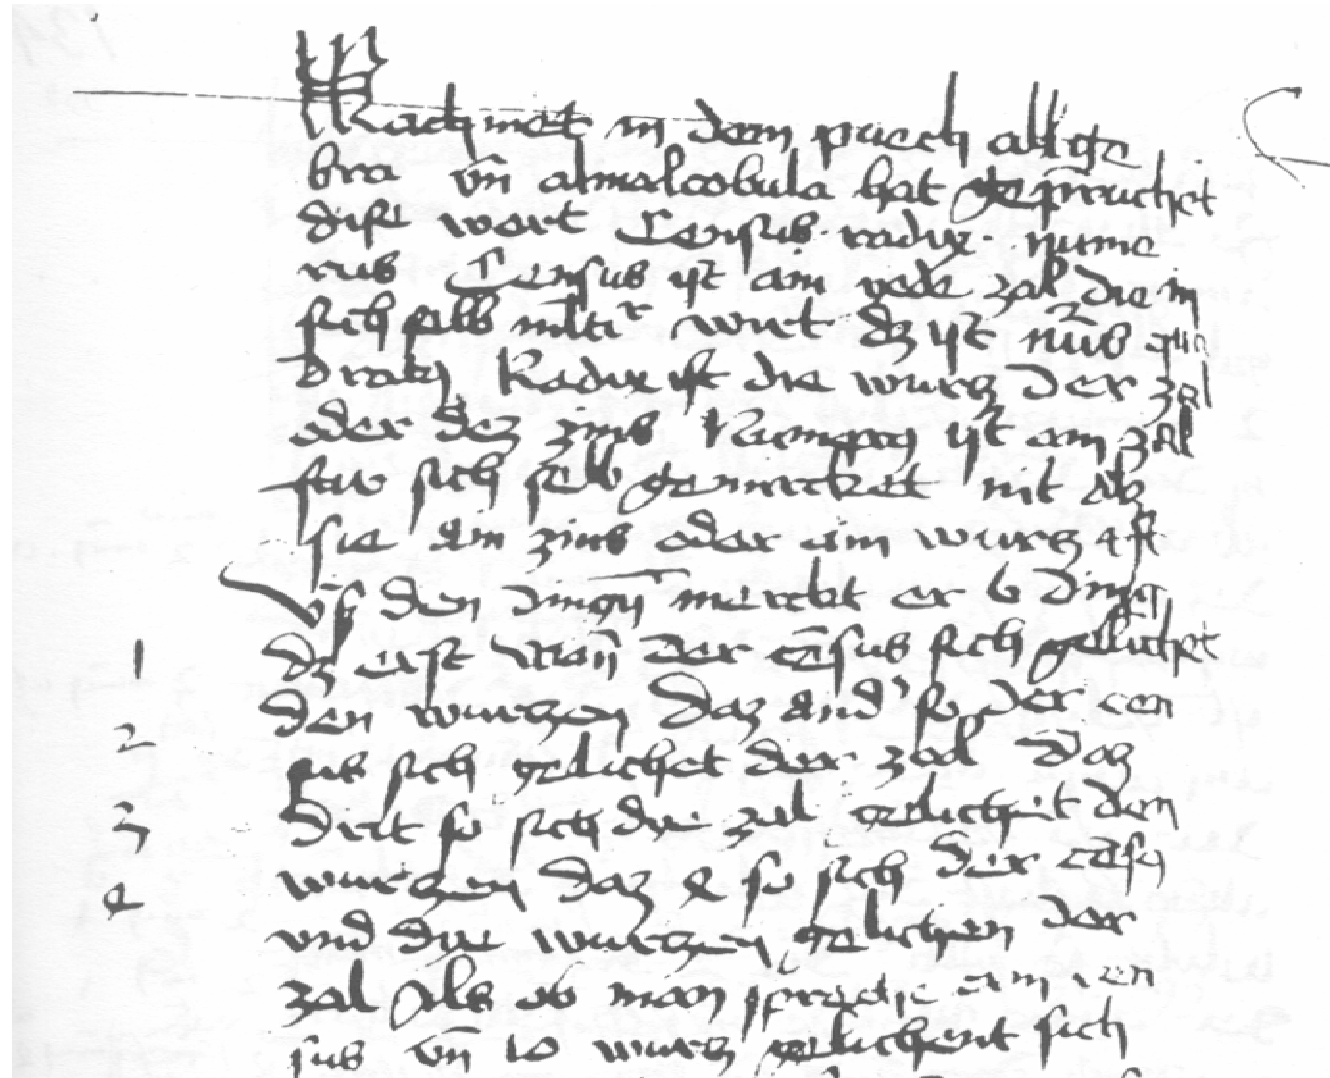 Machmet in dem puech allge
bra vn̄ almalcobula hat gepruchet
dise wort Census. radix. nume
rus Census ist ain yede zal die in
sich selb ml̄ticr wirt dz ist nūs qua
dratus Radix ist die wurtz der zal
oder dez zins Numerus ist ain zal
fur sich selb gemercket nit alz
sie ain zins oder ain wurtz ist
vß den dingn̄ merckt er 6 ding
1 dz erst wan̄ der cēsus sich gelichet
den wurtzen
2 daz and' so der cen
sus sich gelichet der zal
3 daz
drit so sich die zal gelichet den
wurtzen
4 daz 4 so sich der cēsus
vnd die wurtzen gelichen der
zal Als ob man sprache ain cen
sus vn̄ 10 wurtz gelichent sich